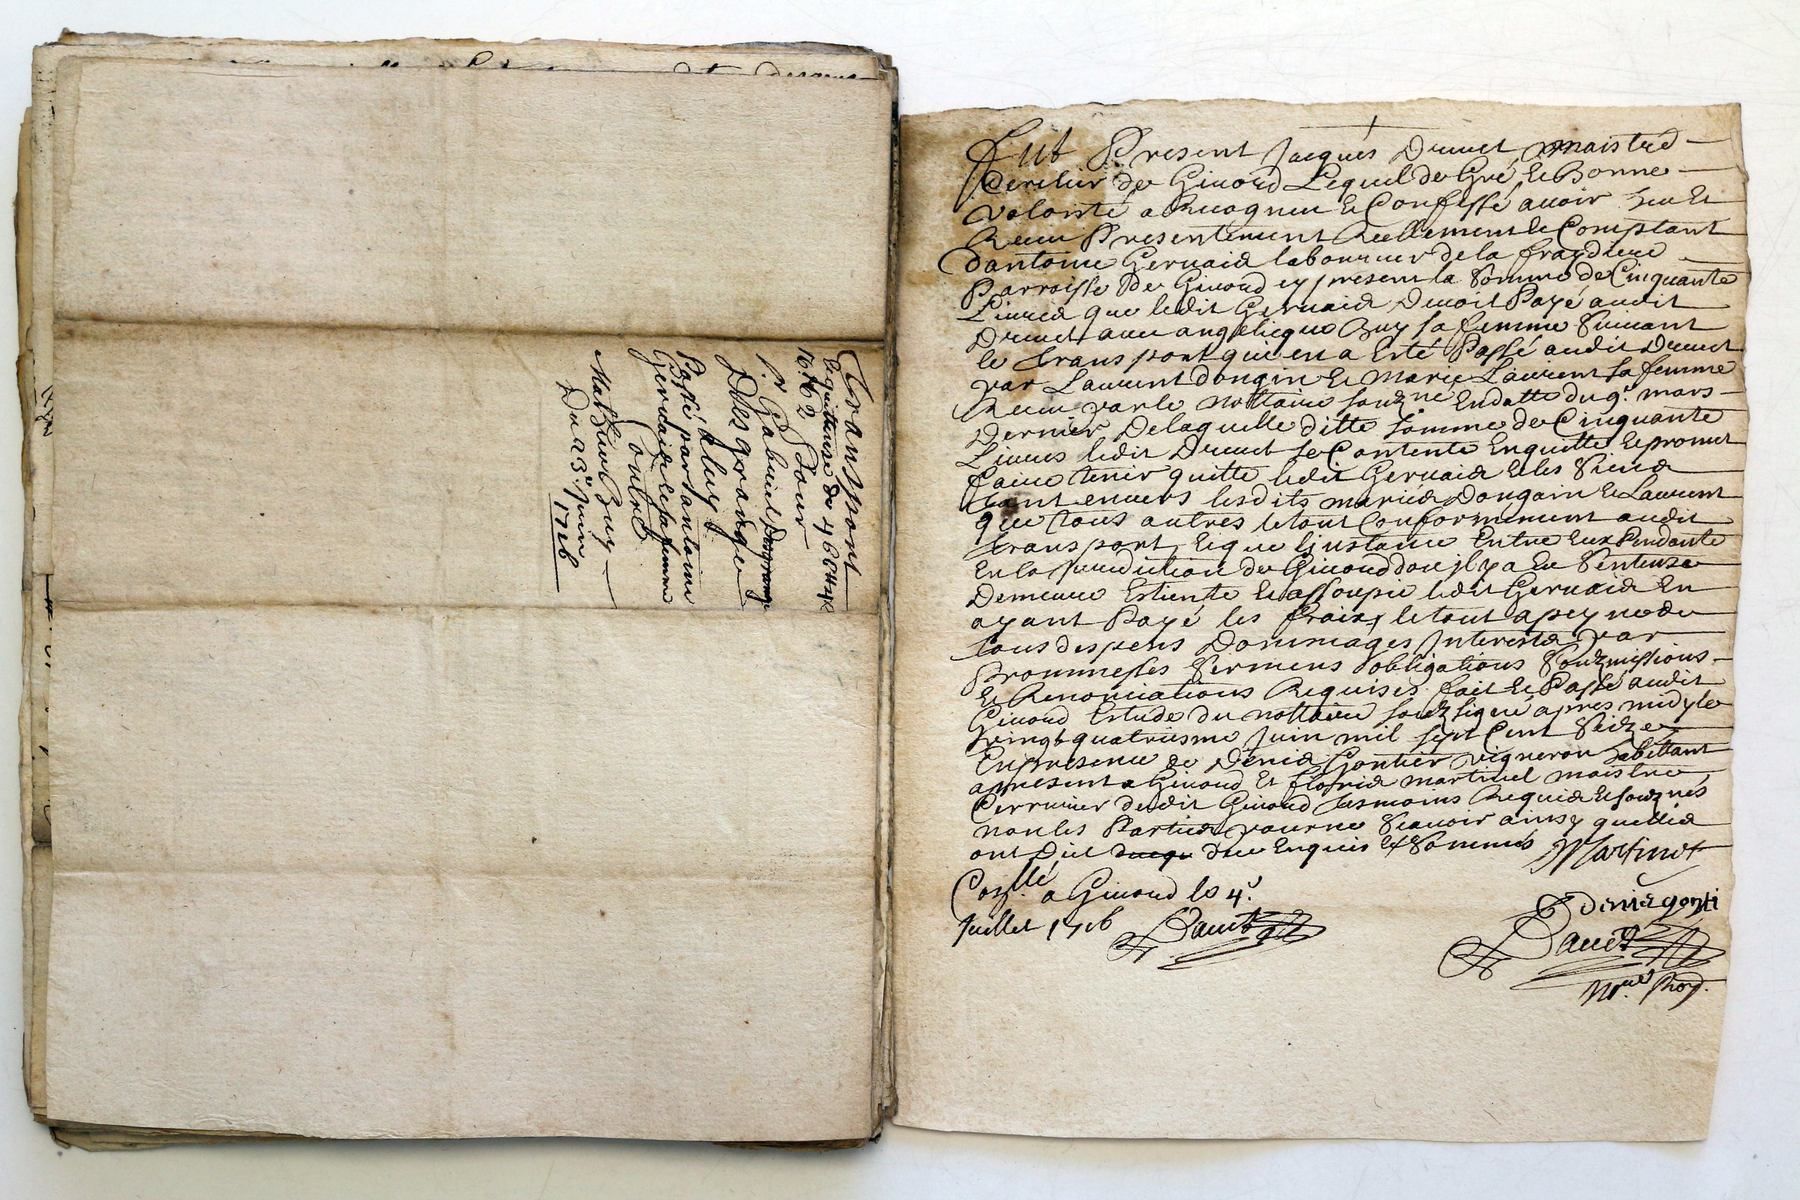 Transport
Et quittance de
Pr Gabriel Desgrange
Desgrange
Passé à luy
par antoine
Gervaid et sa femme
Contre
Mathieu Buy
Du 23e Juin
1716
Fut Present Jacques Druuet maistre
de Giuord Lequel de Gré et Bonne
volonté a et Confessé auoir heu et
Receu Presentement Reellement et Comptant
dantoine Geruaid laboureur de la fraydiere
Parroisse de Giuord cy present la Somme de Cinquante
Liures que ledit Geruaid Deuoit Payé audit
Druuet, auec angelicque Buy sa femme Suiuant
le transport qui en a Esté Passé audit Druuet
par Laurent dongin et Marie Laurent sa femme
Receu par le nottaire souzne En datte du 9e mars
Dernier De laquelle ditte somme de Cinquante
Liures ledit Druuet se Contente En quitte et promet
faire tenir quitte ledit Geruaid et les Siens
tant enuers lesdits mariés Dongain et Laurent
que tous autres le tout Conformement audit
transport, Et que linstance Entre Eux Pendante
En la Jurisdiction de Giuord dou jl y a Eu Sentense
Demeure Estiente et assoupie ledit Geruaid En
ayant Payé les fraix, le tout a peyne de
tous despens Dommages Interests par
Prommesses Sermens obligations Souzmissions
et Renonciations Requises. fait et Passé audit
Giuord Estude du nottaire souzsigné apres midy le
Vingt quatriesme Juin mil sept Cent Seize
En presence de Denis Gontier vigneron habittant
a present a Giuord Et martinet maistre
Serrurier dudit Giuord tesmoins Requis Et souznés
non les Parties pour ne Scauoir ainsy quelles
ont Dit de ce Enquis et Sommés Martinet
a Giuord le 4e
Juillet 1716
denis gonti
Roy.